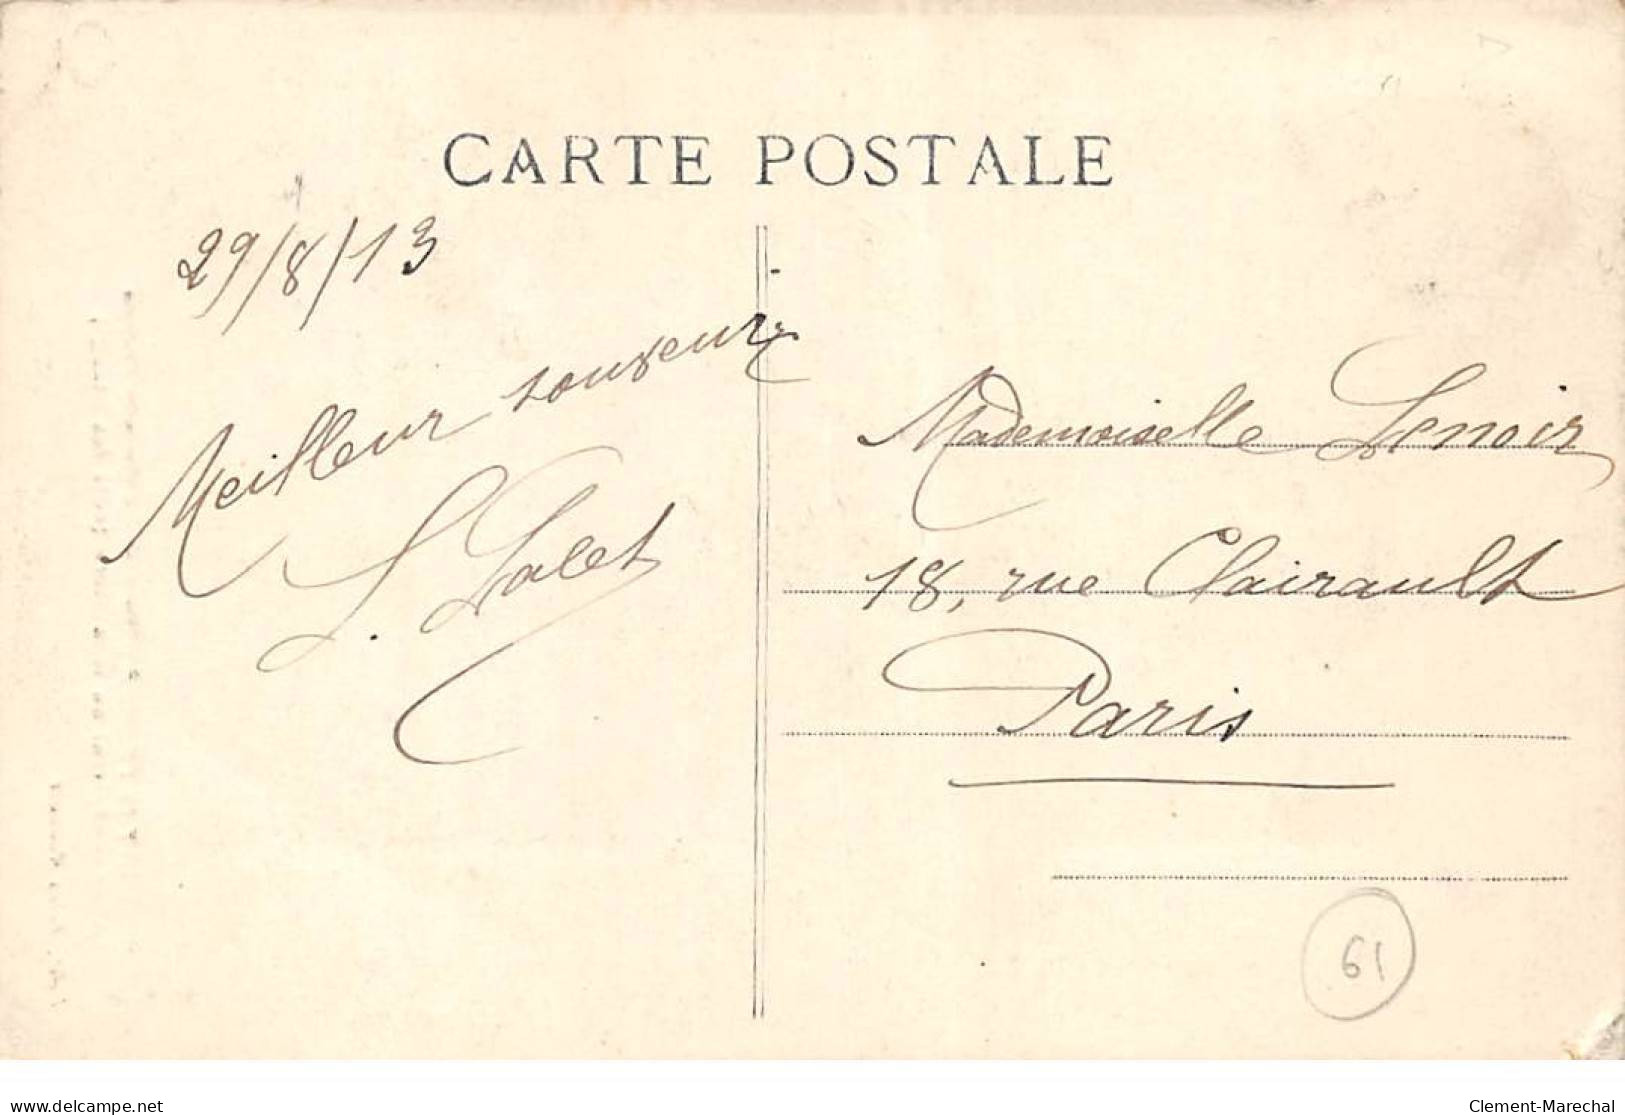 CARTE POSTALE
29/8/13
Meilleur souvenir
Mademoiselle Lenoir
18, rue Clairault
Paris
61
www.delcampe.net
Clement-Marechal